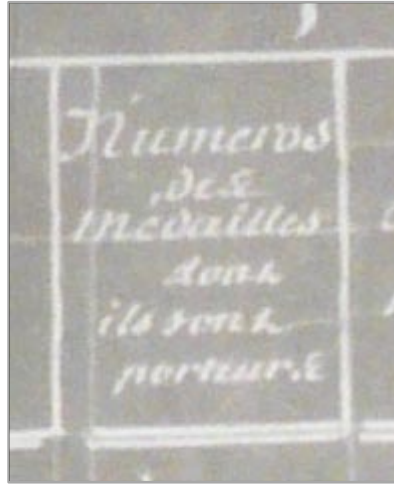 Numeros
des
Medailles
dont
ils sont
porteurs